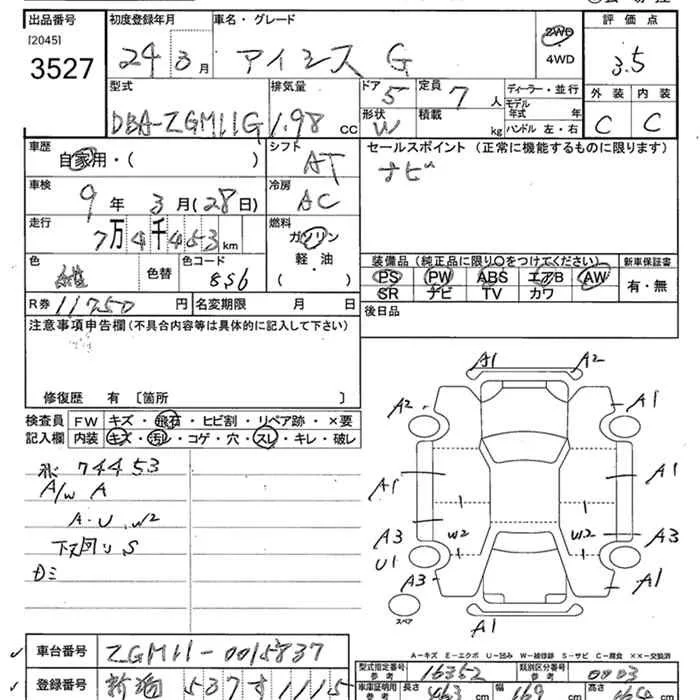 出品番号 初度登録年月 車名・グレード 評価点
[2045]
3527
24 3月 アイシス G 2WD
4WD
3.5
型式 排気量 ドア 5 定員 7人 ディーラー・並行
モデル年式 年
外装 内装
DBA-ZGM11G 1.98 cc 形状 W 積載 kg ハンドル 左・右 C C
車歴 シフト セールスポイント (正常に機能するものに限ります)
自家用・( ) AT ナビ
車検 9年 3月(28日) 冷房 AC
走行 7万4千453km 燃料
ガソリン
軽・油
( )
装備品(純正品に限り〇をつけてください) 新車保証書
色 色替 色コード 8S6
PS PW ABS エアB AW 有・無
SR ナビ TV カワ
R券 11750円 名変期限 月 日 後日品
注意事項申告欄(不具合内容等は具体的に記入して下さい)
修復歴 有 [箇所 ]
検査員 FW キズ・飛石・ヒビ割・リペア跡・×要
記入欄 内装 キズ・汚レ・コゲ・穴・スレ・キレ・破レ
74453
A/W A
A・U・W2
下又回リ S
A1 A2
A2 A1
A1 A1
A3 W2 W2 A3
U1
A3 A1
スペア
A1
A-キズ E-エクボ U-凹み W-補修跡 S-サビ C-腐食 ××-交換済
車台番号 ZGM11-0015837
型式指定番号 参考 16352 類別区分番号 参考 0003
登録番号 新潟 537 す 1115
車庫証明 参考 長さ 463 cm 幅 169 cm 高さ cm